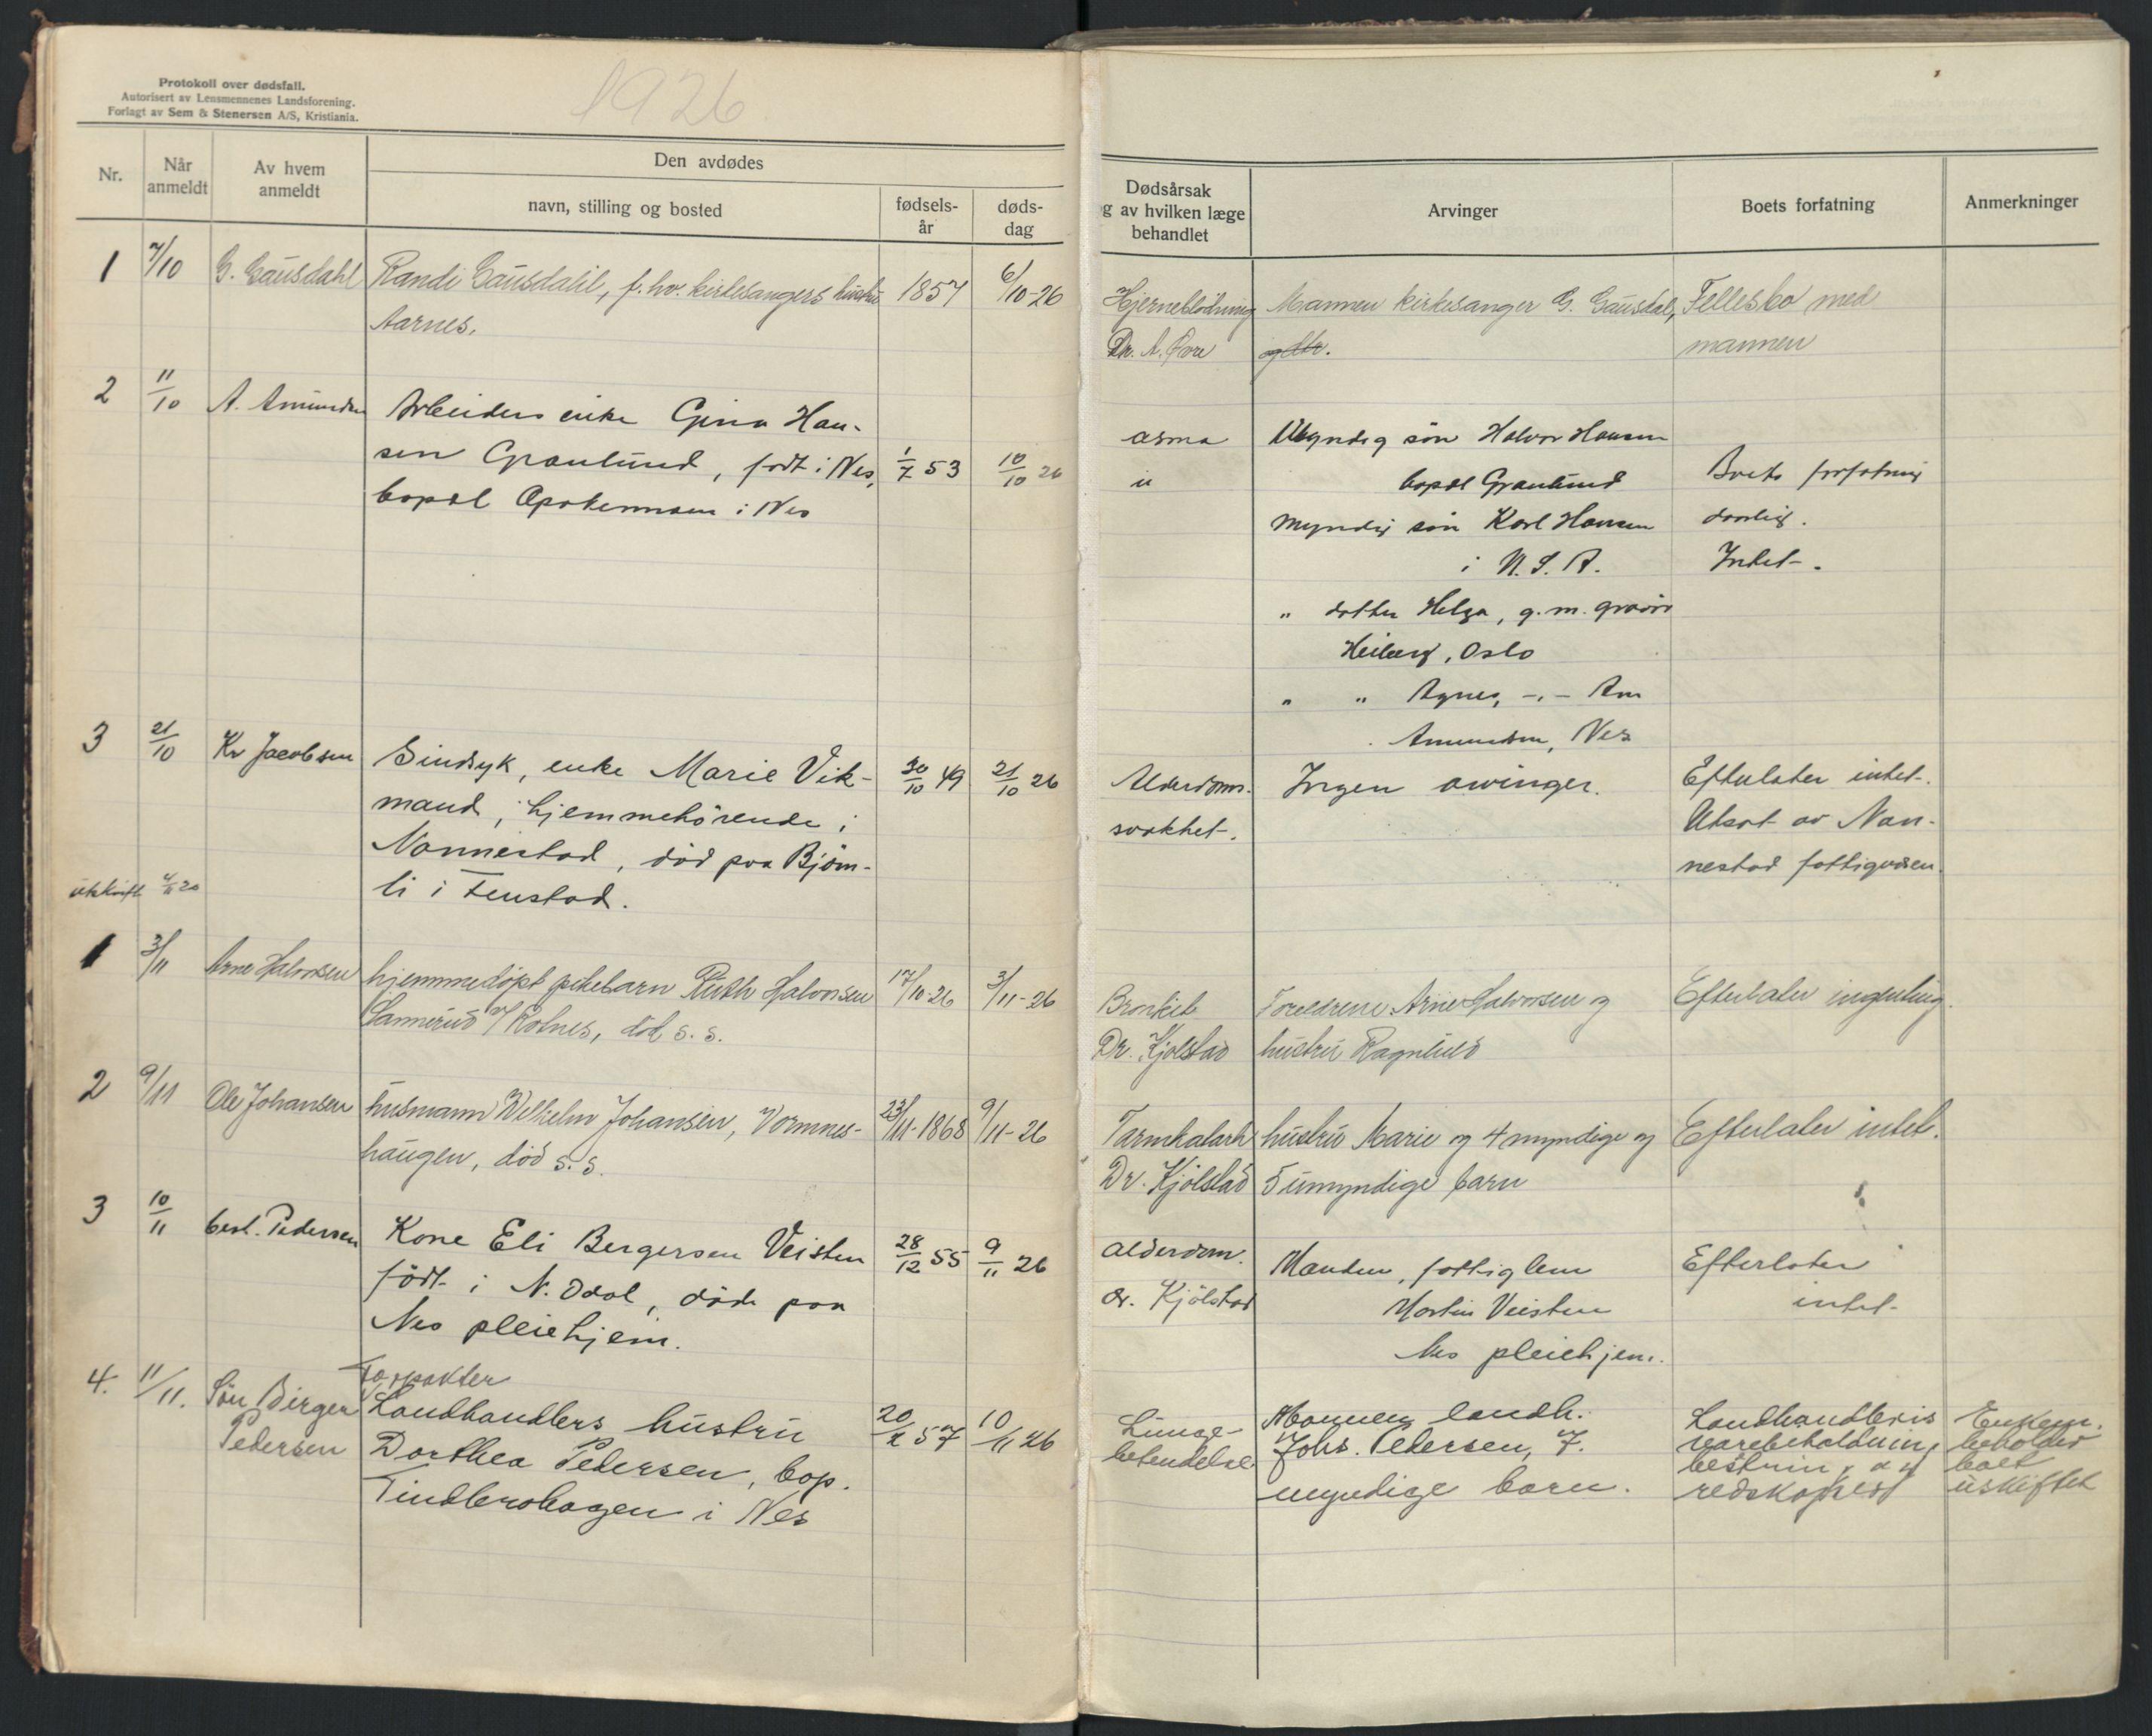 Protokoll over dødsfall.
Autorisert av Lensmennenes Landsforening.
Forlagt av Sem & Stenersen A/S, Kristiania.
1926
Nr.
Når
anmeldt
Av hvem
anmeldt
Den avdødes
navn, stilling og bosted
fødsels-
år
døds-
dag
Dødsårsak
g av hvilken læge
behandlet
Arvinger
Boets forfatning
Anmerkninger
1 7/10 G. Gausdahl Randi Gausdahl, f. hv. kirkesangers hustru 1857 6/10-26 Hjerneblødning Mannen kirkesanger G. Gausdal, Fellesbo med
Aarnes. Dr. A. mannen
2 11/10 A. Amundsen Arbeiders enke Gina Han-
sen Granlund, født i Nes, 1/7 53 10/10 26 asma Myndig søn Halvor Hansen
bopæl i Nes bopæl Granlund Boets forfatning
myndig søn Karl Hansen daarlig.
i U. S. A. Intet.
" datter Helga, g. m.
Heiberg, Oslo
" " Agnes, -"- Am
Amundsen, Nes
3 21/10 Kr Jacobsen Sindsyk, enke Marie Vik- 30/10 49 21/10 26 Alderdoms- Ingen arvinger. Efterlater intet.
mand, hjemmehørende i svakhet. Utsat av Nan-
Nannestad, død paa Bjørn- nestad fattigvæsen.
utskrift li i Fenstad.
1 3/11 Arne Halvorsen hjemmedøpt pikebarn Ruth Halvorsen 17/10-26 3/11-26 Bronkit Foreldrene Arne Halvorsen og Efterlater ingenting.
Sannerud Rotnes, død s. s. Dr. Kjølstad hustru Ragnhild
2 9/11 Ole Johansen husmann Wilhelm Johansen, Vormnes- 23/11-1868 9/11-26 Tarmkatarh hustru Marie og 4 myndige og Efterlater intet.
haugen, død s. s. Dr. Kjølstad 5 umyndige barn
3 10/11 best. Pedersen Kone Eli Bergersen Veisten 28/12 55 9/11 26 Alderdom. Manden, fattiglem Efterlater
født i N. Odal, døde paa dr. Kjølstad Martin Veisten intet.
Nes pleiehjem. Nes pleiehjem.
4. 11/11. Søn Birger Forpakter
Pedersen Landhandlers hustru 20/ 57 10/11 26 Lunge- Mannen landh. Landhandleris Enkem.
Dorthea Pedersen, bop. betendelse Johs. Pedersen, 7. varebeholdning, beholder
i Nes myndige barn. redskaper boet
uskiftet